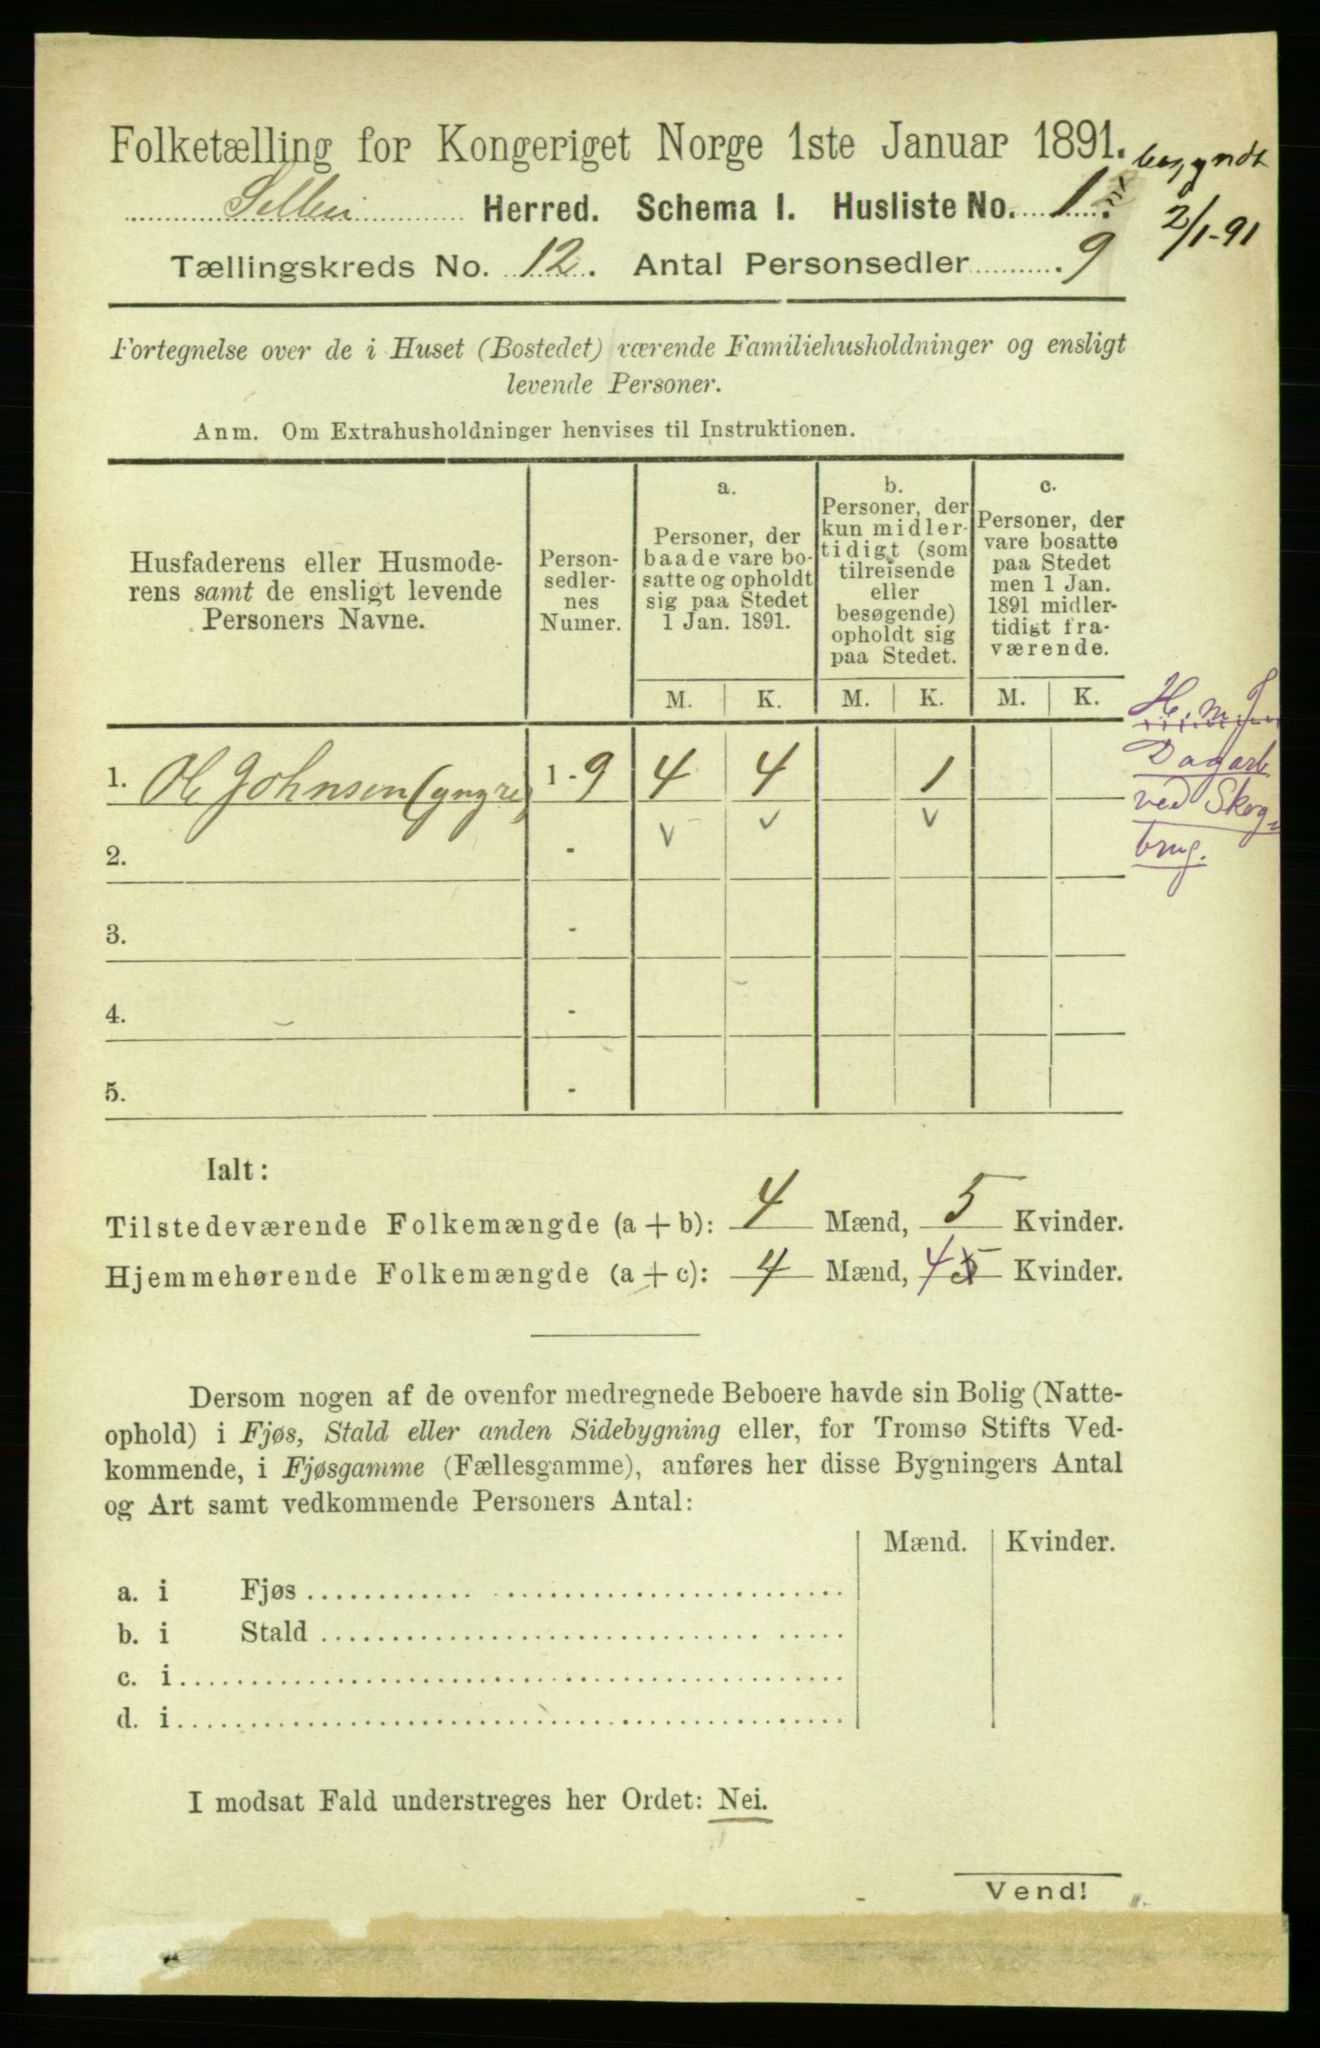 Folketælling for Kongeriget Norge 1ste Januar 1891.
begyndt
2/1-91
Selbu Herred. Schema I. Husliste No. 1.
Tællingskreds No. 12. Antal Personsedler 9
Fortegnelse over de i Huset (Bostedet) værende Familiehusholdninger og ensligt
levende Personer.
Anm. Om Extrahusholdninger henvises til Instruktionen.
Husfaderens eller Husmode-
rens samt de ensligt levende
Personers Navne.
Person-
sedler-
nes
Numer.
a.
Personer, der
baade vare bo-
satte og opholdt
sig paa Stedet
1 Jan. 1891.
b.
Personer, der
kun midler-
tidigt (som
tilreisende
eller
besøgende)
opholdt sig
paa Stedet.
c.
Personer, der
vare bosatte
paa Stedet
men 1 Jan.
1891 midler-
tidigt fra-
værende.
M. K. M. K. M. K.
1. Ole Johnsen (yngre) 1 - 9 4 4 1
H. m. J.
Dagarb.
ved Skog-
brug.
2. -
3. -
4. -
5. -
Ialt:
Tilstedeværende Folkemængde (a + b): 4 Mænd, 5 Kvinder.
Hjemmehørende Folkemængde (a + c): 4 Mænd, 4 5 Kvinder.
Dersom nogen af de ovenfor medregnede Beboere havde sin Bolig (Natte-
ophold) i Fjøs, Stald eller anden Sidebygning eller, for Tromsø Stifts Ved-
kommende, i Fjøsgamme (Fællesgamme), anføres her disse Bygningers Antal
og Art samt vedkommende Personers Antal:
Mænd. Kvinder.
a. i Fjøs
b. i Stald
c. i
d. i
I modsat Fald understreges her Ordet: Nei.
Vend!